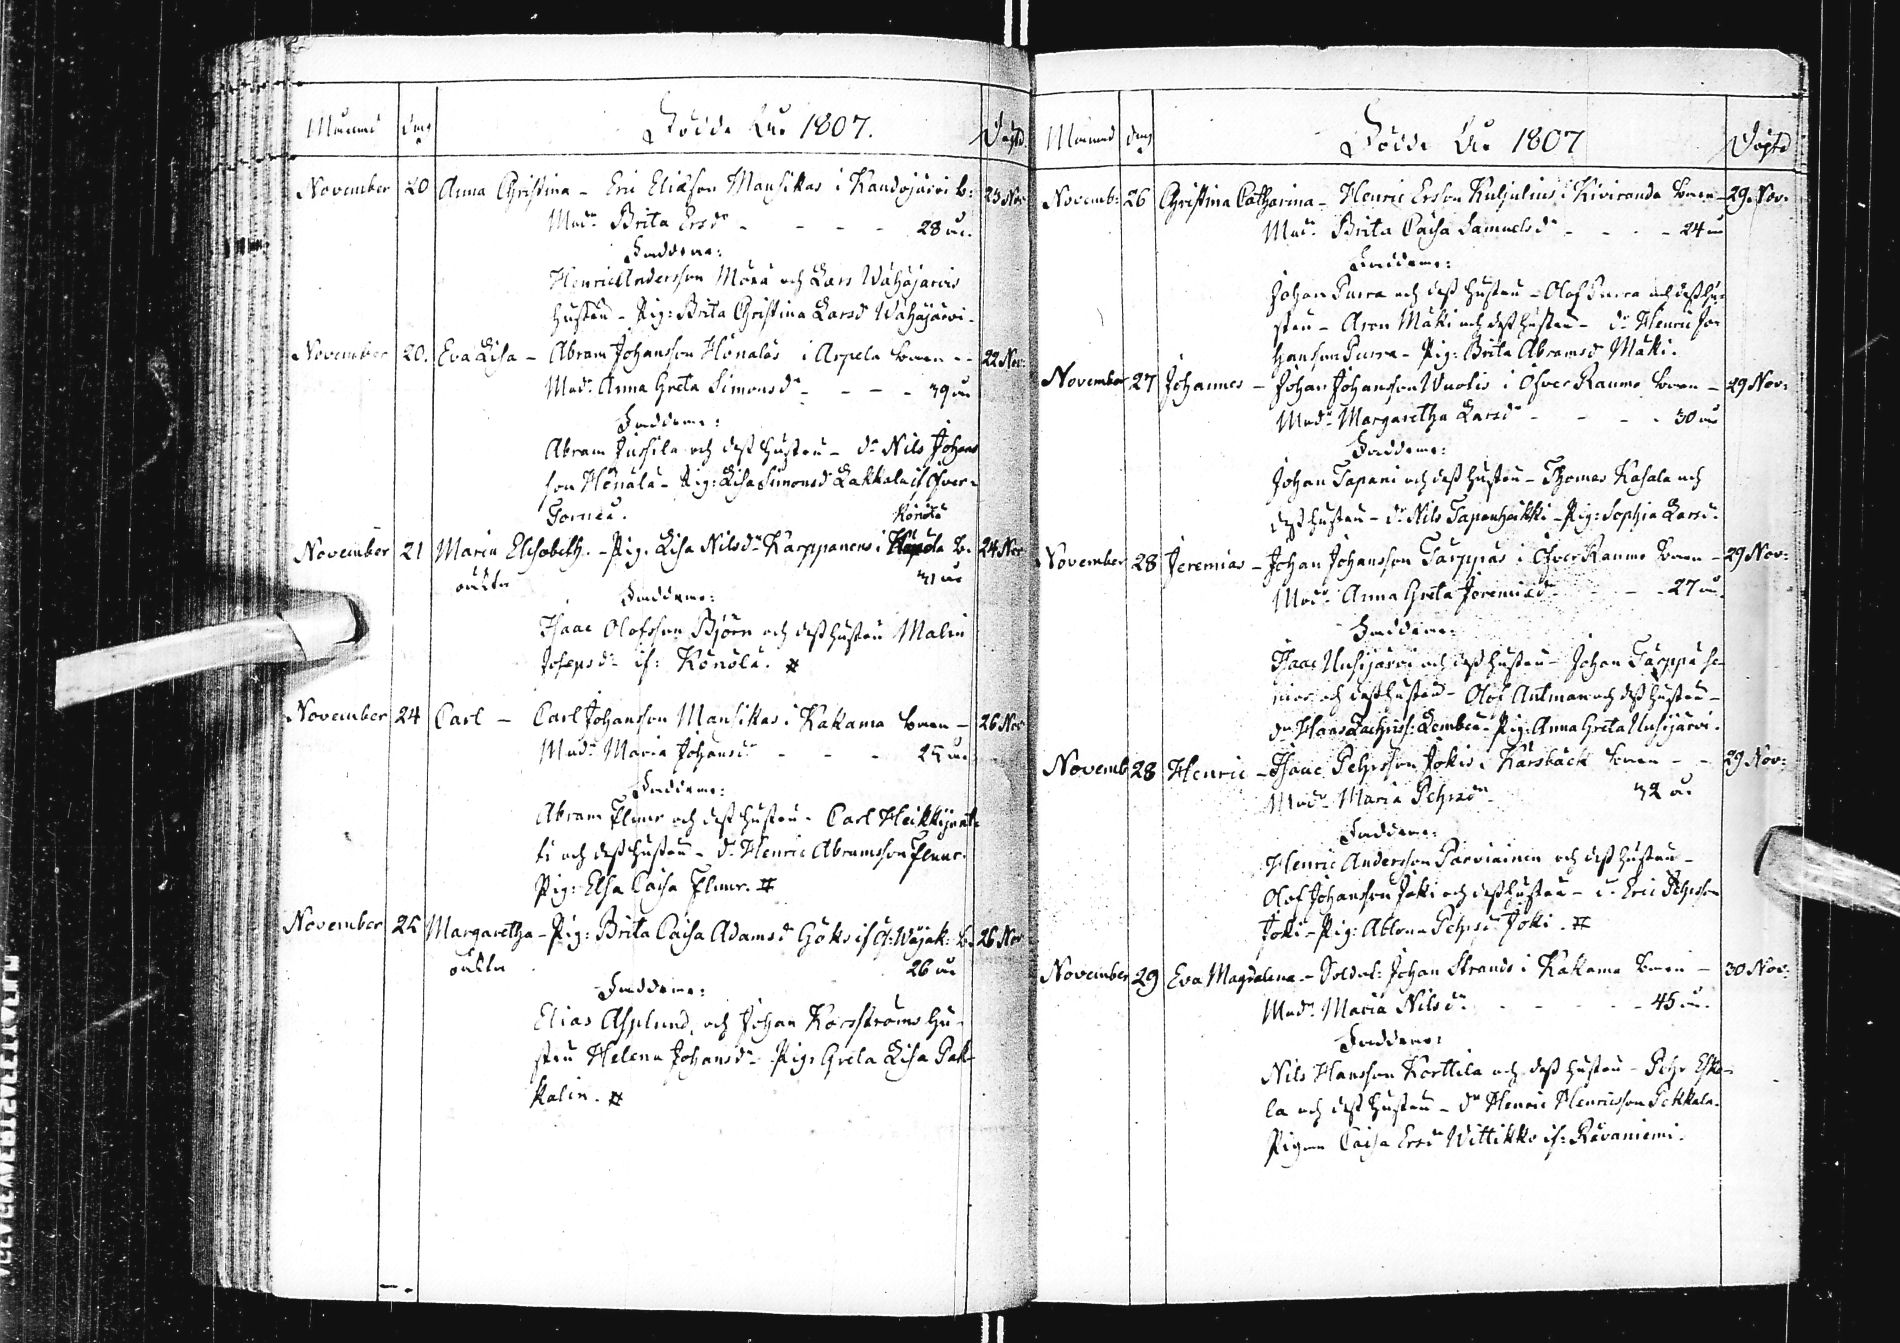 Månad dag Födde År 1807. Döptd
November 20 Anna Christina - Eric Eliæson Mansikas i Kandojärvi b: 23 Nov
Mod:n Brita Ersd:r - - - - 28 år.
Faddrar:
Henric Andersson Möxä och Lars Wähäjärvis
hustru - Pig: Brita Christina Larsd:r Wähäjärvi.
November 20. Eva Lisa - Abram Johansson Hönäläs i Arpela barn - - 22 Nov:
Mod:n Anna Greta Simonsd:r - - - - 39 år
Faddrar:
Abram Jussila och dess hustru - d:r Nils Johans
son Hönälä - Pig: Lisa Simonsd:r Lakkala if. Öfver-
Torneå.
November 21 Maria Elisabeth. - Pig. Lisa Nilsd:r Karppanens i Könölä b. 24 Nov
oäkta 31 år
Faddrar:
Isaac Olofsson Björn och dess hustru Malin
Josepsd:r if: Könölä. #
November 24 Carl - Carl Johansson Mansikas i Kakama barn - 26 Nov
Mod:n Maria Johansd:r - - - 25 år
Faddrar:
Abram Ylmer och dess hustru - Carl Heikkijunt-
ti och dess hustru - d:r Henric Abramsson Ylmer.
Pig: Elsa Caisa Ylmer. #
November 25 Margaretha - Pig: Brita Caisa Adamsd:r Göks if. Ö: Wojak: b. 26 Nov
oäkta 26 år
Faddrar:
Elias Asplund, och Johan Korsströms hu-
stru Helena Johansd:r - Pig: Greta Lisa Pak-
kalin. #
Månad dag Födde År 1807 Döptd
Novemb: 26 Christina Catharina - Henric Ersson Kuljulins i Kiviranda barn - 29. Nov.
Mod:n Brita Caisa Samuelsd:r - - - - 24 år
Faddrar:
Johan Purra och dess hustru - Olof Purra och dess hu-
stru - Aron Mäki och dess hustru - d:r Henric Jo-
hansson Purra - Pig: Brita Abramsd:r Mäki.
November 27 Johannes - Johan Johansson Wuotis i Öfver Raumo barn - 29 Nov:
Mod:n Margaretha Larsd:r - - - - 30 år
Faddrar:
Johan Tapani och dess hustru - Thomas Kasala och
dess hustru - d:r Nils Tapani - Pig: Sophia Larsd:r
November 28 Jeremias - Johan Johansson Tärppäs i Öfver Raumo barn - 29 Nov:
Mod:n Anna Greta Jeremiæd:r - - - 27 år.
Faddrar:
Isaac Uusijärvi och dess hustru - Johan Tärppä se-
nior och dess hustru - Olof Antman och dess hustru -
d:r Hans Zachriss: Lembea - Pig: Anna Greta Uusijärvi.
Novemb 28 Henric - Isaac Pehrsson Jokis i Karsbäck barn - - 29 Nov:
Mod:n Maria Pehrsd:r 32 år
Faddrar:
Henric Andersson Parviainen och dess hustru -
Olof Johansson Joki och dess hustru - d: Eric Pehrsson
Joki - Pig: Ablona Pehrsd:r Joki. #
November 29 Eva Magdalena - Soldat: Johan Strands i Kakama barn - 30 Nov:
Mod:n Maria Nilsd:r - - - - - 45 år.
Faddrar:
Nils Hansson Korttila och dess hustru - Pehr Esko-
la och dess hustru - d:r Henric Henricsson Pekkala.
Pigan Caisa Ersd:r Wittikko if: Råvaniemi.